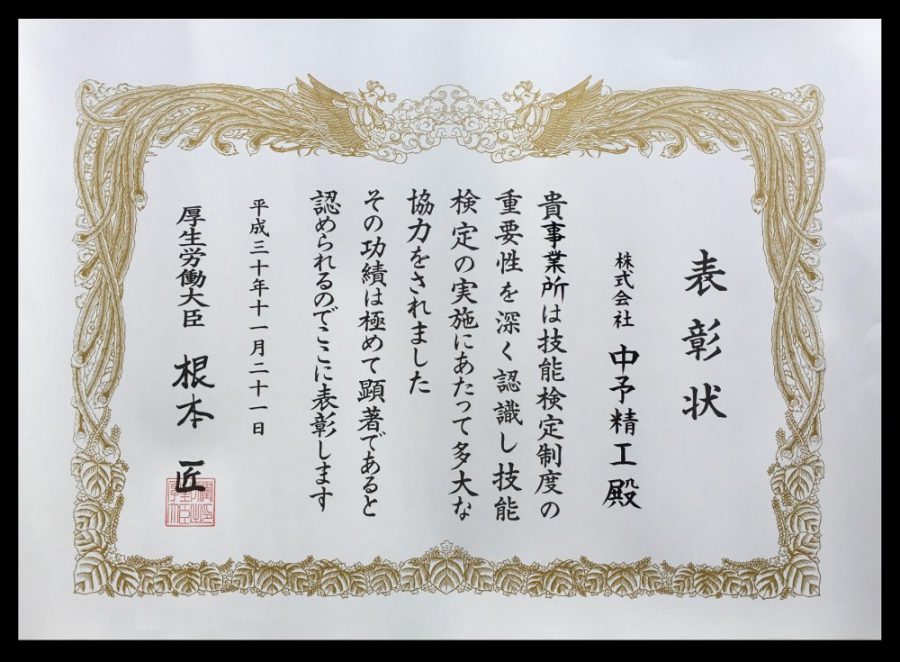 表彰状
株式会社 中予精工殿
貴事業所は技能検定制度の
重要性を深く認識し技能
検定の実施にあたって多大な
協力をされました
その功績は極めて顕著であると
認められるのでここに表彰します
平成三十年十一月二十一日
厚生労働大臣 根本匠